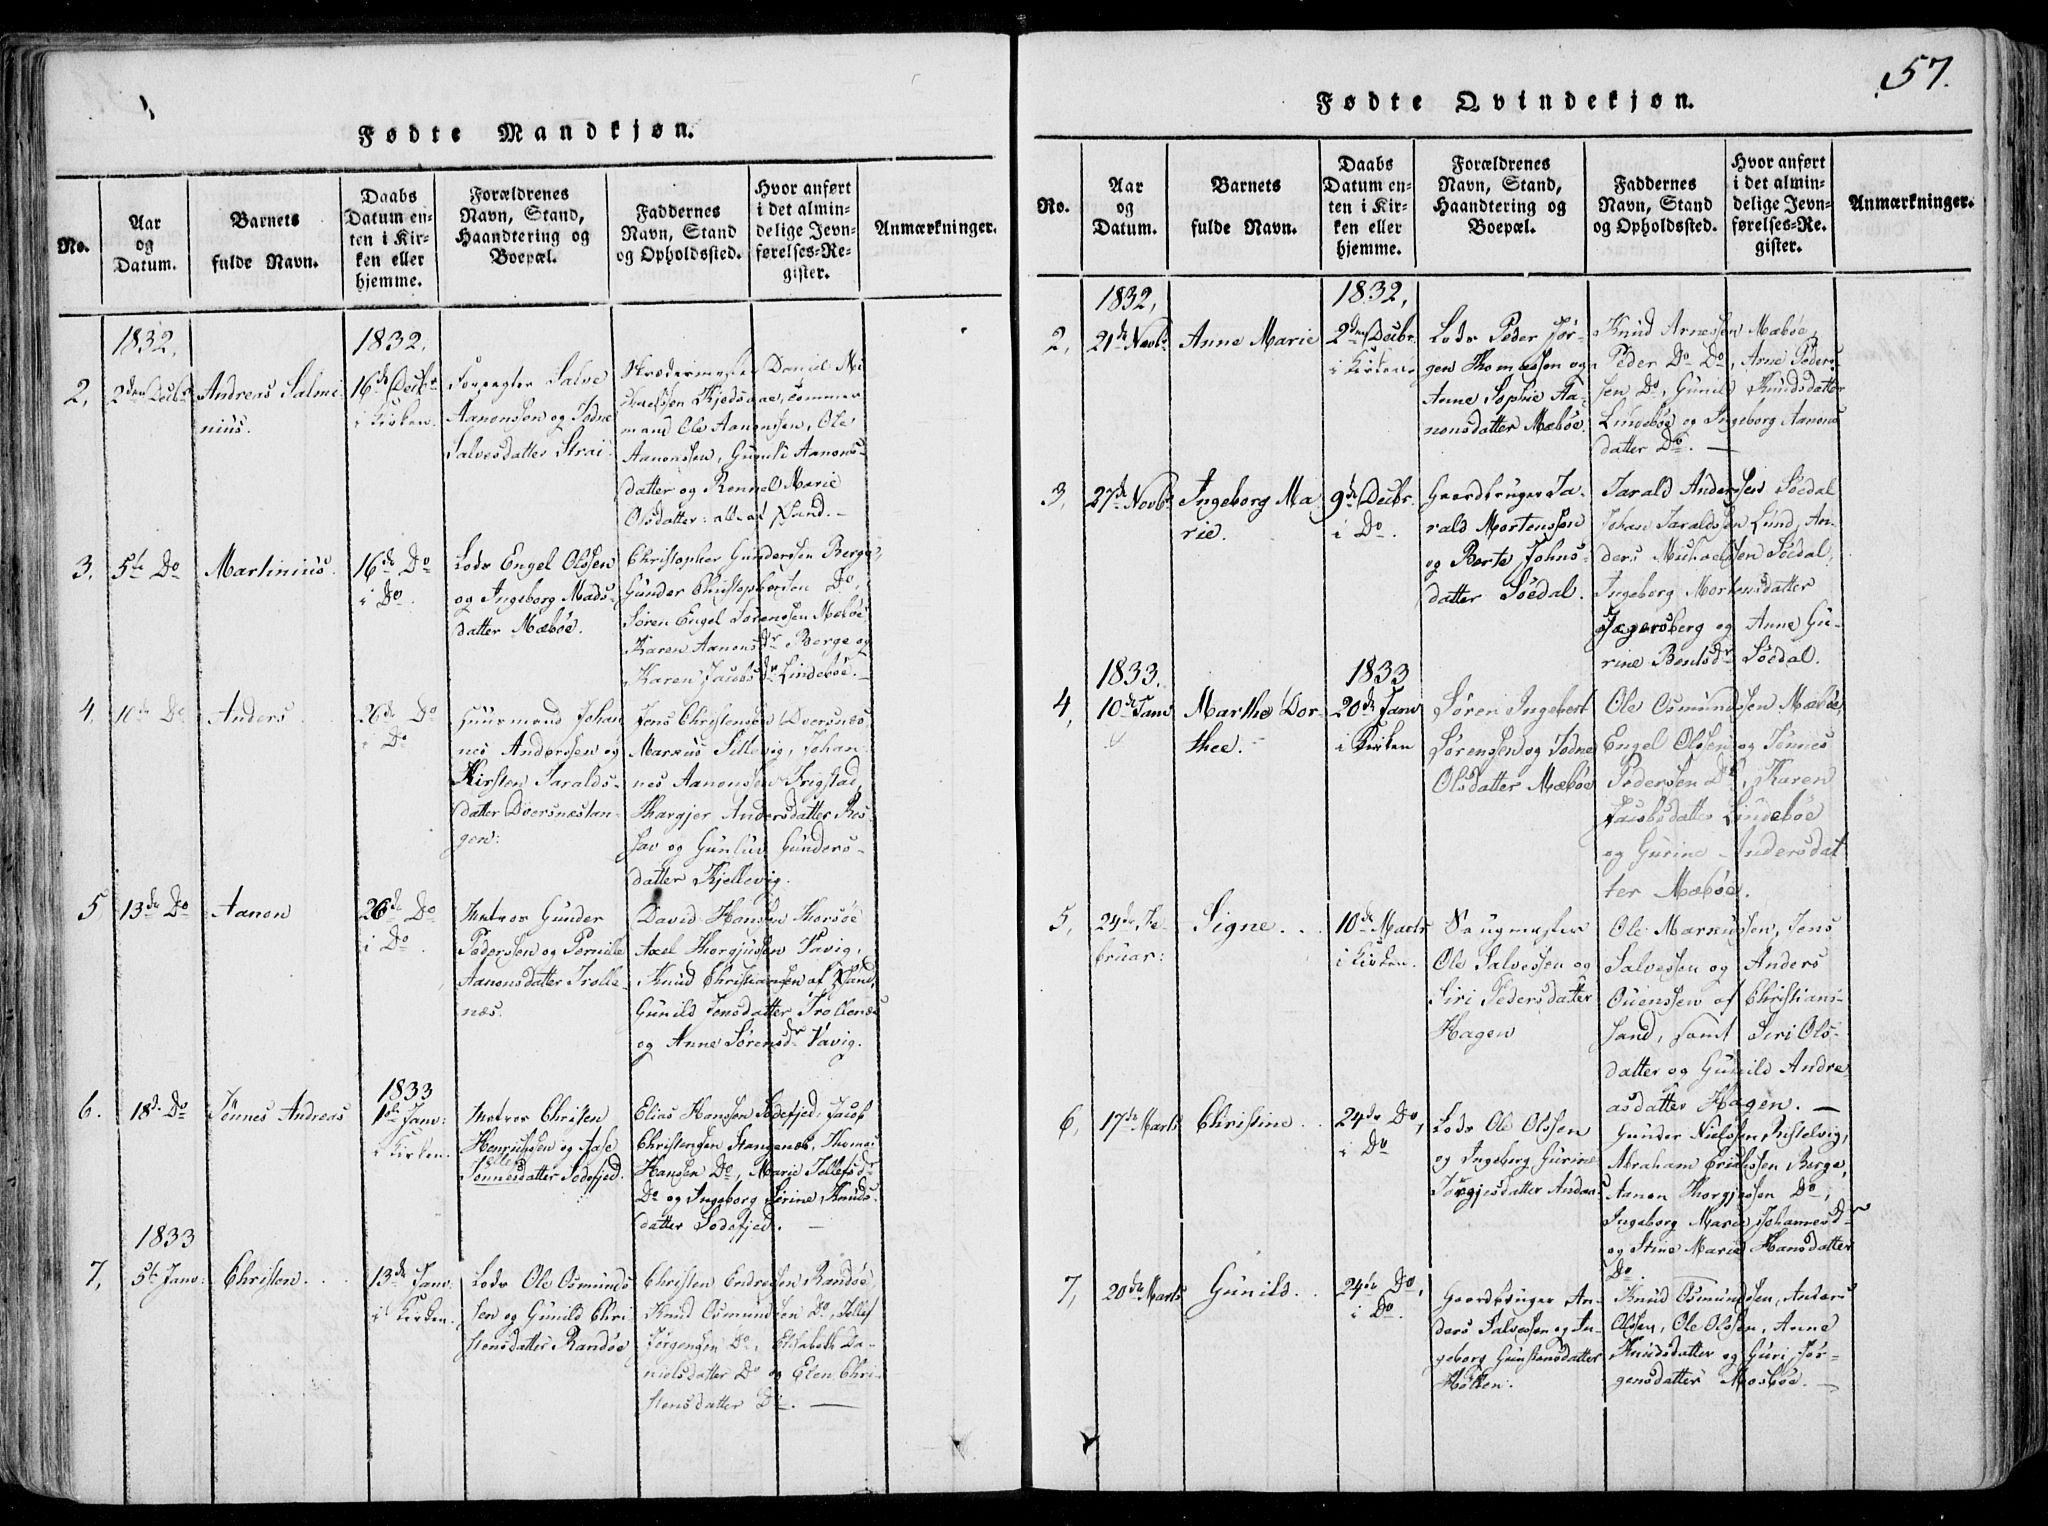 57.
Fødte Mandkjøn.
No.
Aar
og
Datum.
Barnets
fulde Navn.
Daabs
Datum en-
ten i Kir-
ken eller
hjemme.
Forældrenes
Navn, Stand,
Haandtering og
Boepæl.
Faddernes
Navn, Stand
og Opholdssted.
Hvor anført
i det almin-
delige Jevn-
førelses-Re-
gister.
Anmærkninger.
1832.
1832.
2,
2den Decbr
Andreas Salmi-
nius.
16de Decbr
i Kirken.
Forpagter Salve
Aanonssen og Todne
Salvesdatter Strai
Skrædermester Daniel
Kjedsaae, Tømmer-
mand Ole Aanonssen, Ole
Aanonssen, Gunild Aanons-
datter og Rønnel Marie
Olsdatter: alle af Xsand.
3,
5te Do
Martinius.
16de Do
i Do.
Lods Engel Olssen
og Ingeborg Mads-
datter Mæbøe.
Christopher Gunderssen Berge,
Gunder Christophersen Do,
Søren Engel Sørenssen Mæbøe
Karen Aanonsdr Berge og
Karen Jacobsdr Lindebøe.
4,
10de Do
Anders
26de Do
i Do
Huusmand Johan-
nes Anderssen og
Kirsten Taralds-
datter Dversnæstan-
gen:
Jens Christensen Dversnæs
Marcus Sillevig, Johan-
nes Aanonsen Frigstad,
Thargjer Andersdatter Ros-
sav og Gunluv Gunders-
datter Kjellevig.
5
13de Do
Aanon
26de Do
i Do.
Matros Gunder
Pederssen og Pernille
Aanonsdatter Trolle-
næs.
David Hanssen Korsøe
Axel Thorgjussen Vavig,
Knud Christianssen af Xsand,
Gunild Jensdatter Trollenæs
og Anne Sørensdr Vavig.
6.
18de Do
Tønnes Andreas
1833
1ste Janv:
i Kirken.
Matros Christen
Henrichssen og Aase
Tønnesdatter Sodefjed.
Elias Hanssen Sodefjed, Jacob
Christensen Stangenes, Thomas
Hanssen Do, Marie Tollefsdr
Do og Ingeborg Serine Knuds-
datter Sodefjed.
1833
7,
5te Janv:
Christen.
13de Janv:
i Kirken.
Lods Ole Osmunds-
sen og Gunild Chri-
stensdatter Randøe
Christen Endresen Randøe,
Knud Osmundsen Do, Tollef
Jørgensen Do, Elisabeth Da-
nielsdatter Do og Elen Chri-
stensdatter Do.
Fødte Qvindekjøn.
No.
Aar
og
Datum.
Barnets
fulde Navn.
Daabs
Datum en-
ten i Kir-
ken eller
hjemme.
Forældrenes
Navn, Stand,
Haandtering og
Boepæl.
Faddernes
Navn, Stand
og Opholdssted.
Hvor anført
i det almin-
delige Jevn-
førelses-Re-
gister.
Anmærkninger.
1832,
1832,
2,
21de Novbr
Anne Marie
2den Decbr.
i Kirken
Lods Peder Jør-
gen Thomassen og
Anne Sophie Aa-
nonsdatter Mæbøe.
Knud Arnessen Mæbøe,
Peder Do Do, Arne Peders-
sen Do, Gunild Knudsdatter
Lindebøe og Ingeborg Aanons-
datter Do.
3,
27de Novbr
Ingeborg Ma-
rie.
9de Decbr.
i Do.
Gaardbruger Ta-
rald Mortenssen
og Berte Johns-
datter Søedal.
Tarald Andersen Søedal
Johan Taraldssen Lund, An-
ders Michaelssen Søedal,
Ingeborg Mortensdatter
Jægersberg og Anne Gu-
rine Bentsdr Søedal.
1833.
1833
4,
10de Janv
Marthe Dor-
thee.
20de Janv
i Kirken
Søren Ingebert
Sørensen og Todne
Olsdatter Mæbøe
Ole Osmundssen Mæbøe,
Engel Olssen og Tønnes
Pederssen Do, Karen
Jacobsdatter Lindebøe
og Gurine Andersdat-
ter Mæbøe.
5,
24de Fe-
bruar:
Signe.
10de Marts
i Kirken.
Saugmester
Ole Salvessen og
Siri Pedersdatter
Hagen
Ole Marcussen, Jens
Salvessen og Anders
Ouenssen af Christian-
sand, samt Siri Ols-
datter og Gunild Andre-
asdatter Hagen.
6,
17de Marts
Christine
24de Do,
i Do
Lods Ole Olssen
og Ingeborg Gurine
Torgjusdatter Andaas
Gunder Nielssen Kistelvig,
Abraham Erichssen Berge,
Aanon Thorgjussen Do,
Ingeborg Marie Johannesdr
og Stine Marie Hansdatter
Do.
7,
20de Marts
Gunild.
24de Do,
i Do.
Gaardbruger An-
ders Salvessen og In-
geborg Gunstensdatter
Holten.
Knud Osmundssen, Anders
Olssen, Ole Olssen, Anne
Knudsdatter og Guri Jør-
gensdatter Mosbøe.